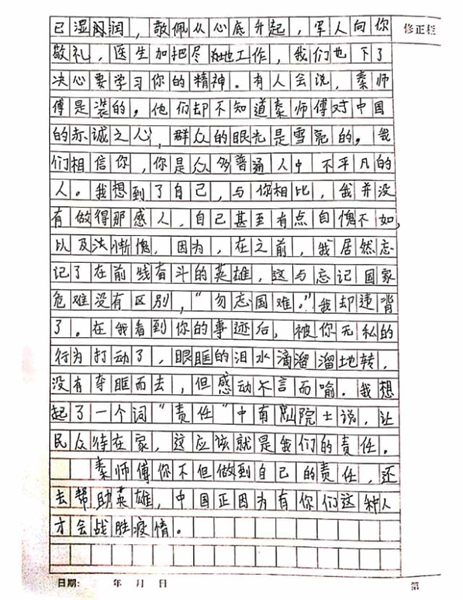 已湿润，敬佩从心底升起，军人向你
修正栏
敬礼，医生加把尽地工作，我们也下了
决心要学习你的精神。有人会说，秦师
傅是装的，他们却不知道秦师傅对中国
的赤诚之心，群众的眼光是雪亮的，我
们相信你，你是众多普通人中不平凡的
人。我想到了自己，与你相比，我并没
有做得那感人，自己甚至有点自愧不如，
以及惭愧，因为，在之前，我居然忘
记了在前线奋斗的英雄，这与忘记国家
危难没有区别，“勿忘国难。”我却违背
了。在我看到你的事迹后，被你无私的
行为打动了，眼眶的泪水滴溜溜地转，
没有夺眶而去，但感动不言而喻。我想
起了一个词“责任”中南山院士说，让
民众待在家，这应该就是我们的责任。
秦师傅你不但做到自己的责任，还
去帮助英雄，中国正因为有你们这种人
才会战胜疫情。
日期： 年 月 日 第